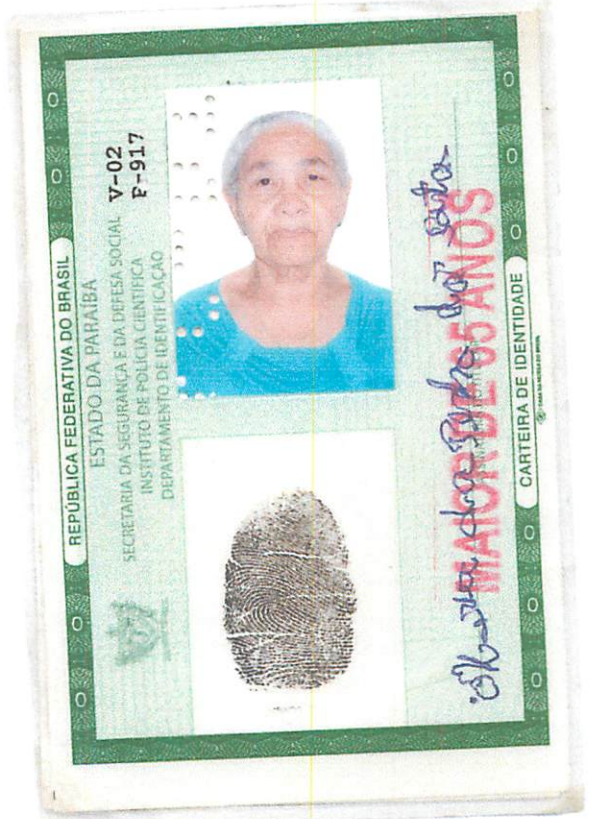 REPÚBLICA FEDERATIVA DO BRASIL
ESTADO DA PARAÍBA
SECRETARIA DA SEGURANÇA E DA DEFESA SOCIAL
INSTITUTO DE POLÍCIA CIENTÍFICA
DEPARTAMENTO DE IDENTIFICAÇÃO
V-02
F-917
MAIOR DE 65 ANOS
CARTEIRA DE IDENTIDADE